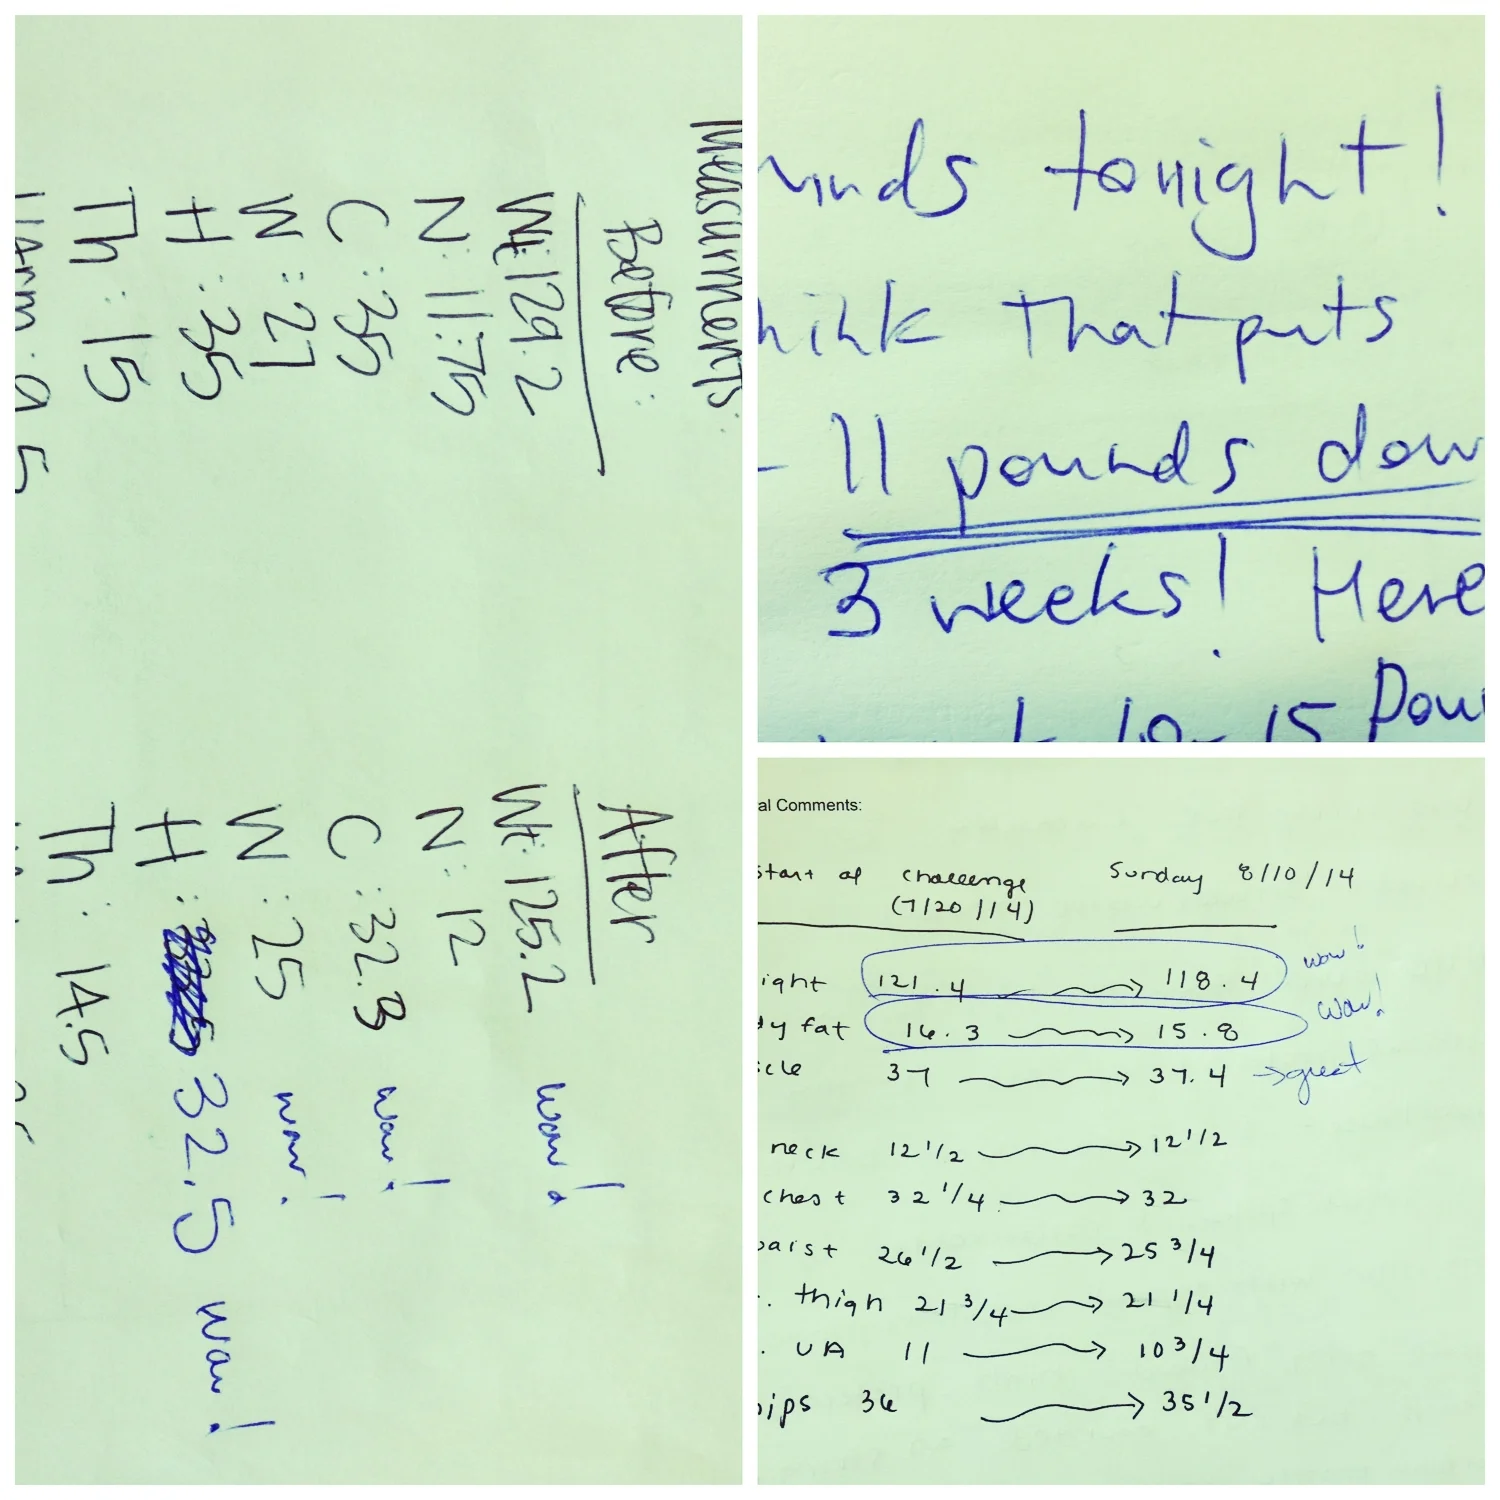 Measurments:
Before:
Wt: 129.2
N: 11.75
C: 35
W: 27
H: 35
Th: 15
9.5
After
Wt: 125.2 wow!
N: 12
C: 32.3 wow!
W: 25 wow!
H: 32.5 wow!
Th: 14.5
tonight!
that puts
- 11 pounds dow
3 weeks! Here
10-15 Pou
al Comments:
start of challenge Sunday 8/10/14
(7/20/14)
ight 121.4 → 118.4 wow!
dy fat 16.3 → 15.8 wow!
scle 37 → 37.4 → great
neck 12 1/2 → 12 1/2
chest 32 1/4 → 32
waist 26 1/2 → 25 3/4
. thigh 21 3/4 → 21 1/4
. UA 11 → 10 3/4
hips 36 → 35 1/2